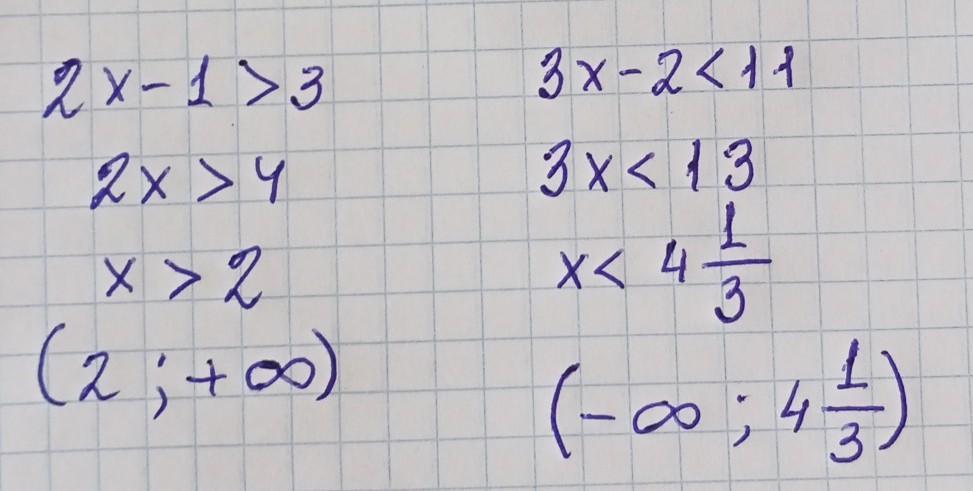 2x - 1 > 3
2x > 4
x > 2
(2 ; + ∞)
3x - 2 < 11
3x < 13
x < 4 1/3
(- ∞ ; 4 1/3)